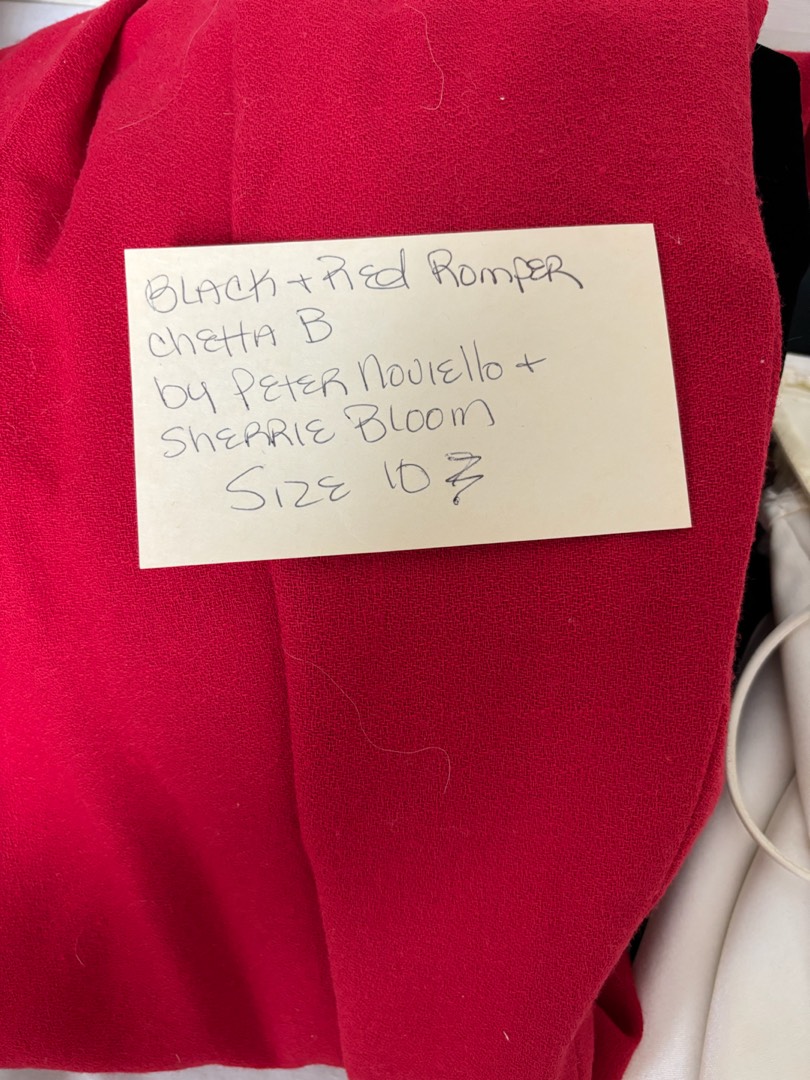 BLACK + Red Romper
Chetta B
by Peter Noviello +
Sherrie Bloom
Size 10